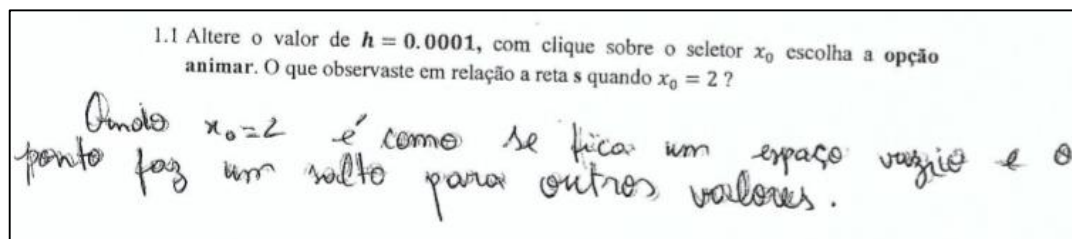 1.1 Altere o valor de h = 0.0001, com clique sobre o seletor x₀ escolha a opção
animar. O que observaste em relação a reta s quando x₀ = 2 ?
Qundo x₀=2 é como se fica um espaço vazio e o
ponto faz um salto para outros valores.